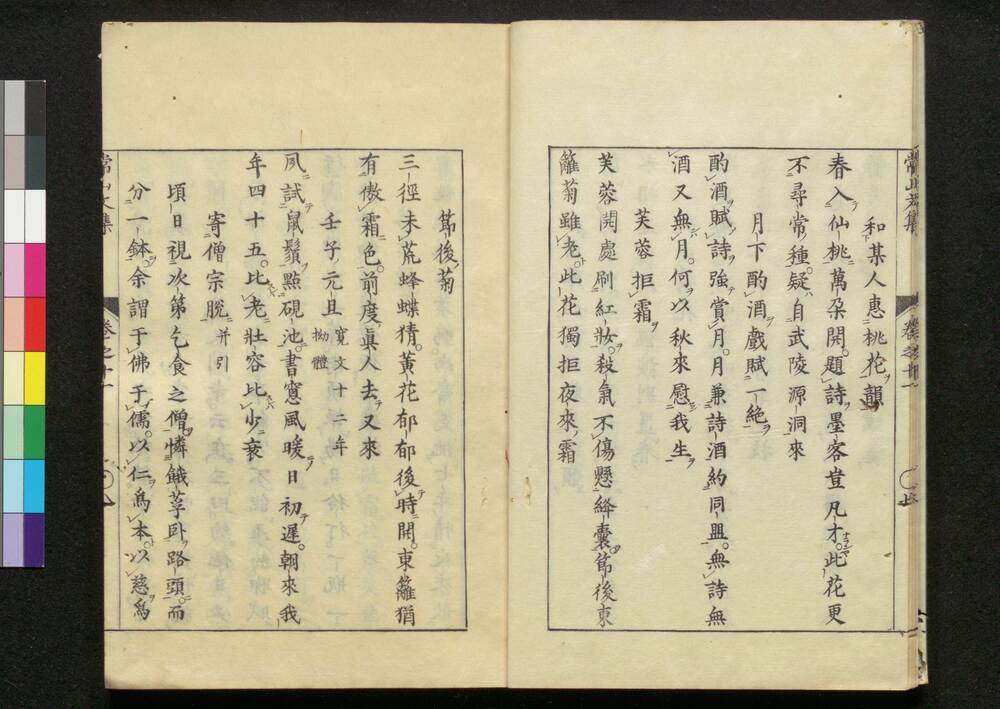 和某人惠桃花韻
春入仙桃萬朶開題詩墨客豈凡才此花更
不尋常種疑自武陵源洞來
月下酌酒戲賦一絶
酌酒賦詩強賞月月兼詩酒約同盟無詩無
酒又無月何以秋來慰我生
芙蓉拒霜
芙蓉開處刷紅妝殺氣不傷懸絳囊節後東
籬菊雖老此花獨拒夜來霜
節後菊
三徑未荒蜂蝶猜黃花郁郁後時開東籬猶
有傲霜色前度眞人去又來
壬子元旦 寛文十二年 拗體
夙試鼠鬚點硯池書窓風暖日初遲朝來我
年四十五比老壯容比少衰
寄僧宗脱 并引
頃日視次第乞食之僧憐餓莩臥路頭而
分一鉢余謂于佛于儒以仁爲本以慈爲
常山文集
卷之十一